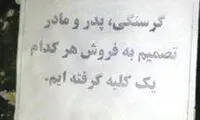 گرسنگی، پدر و مادر
تصمیم به فروش هر کدام
یک کلیه گرفته ایم.